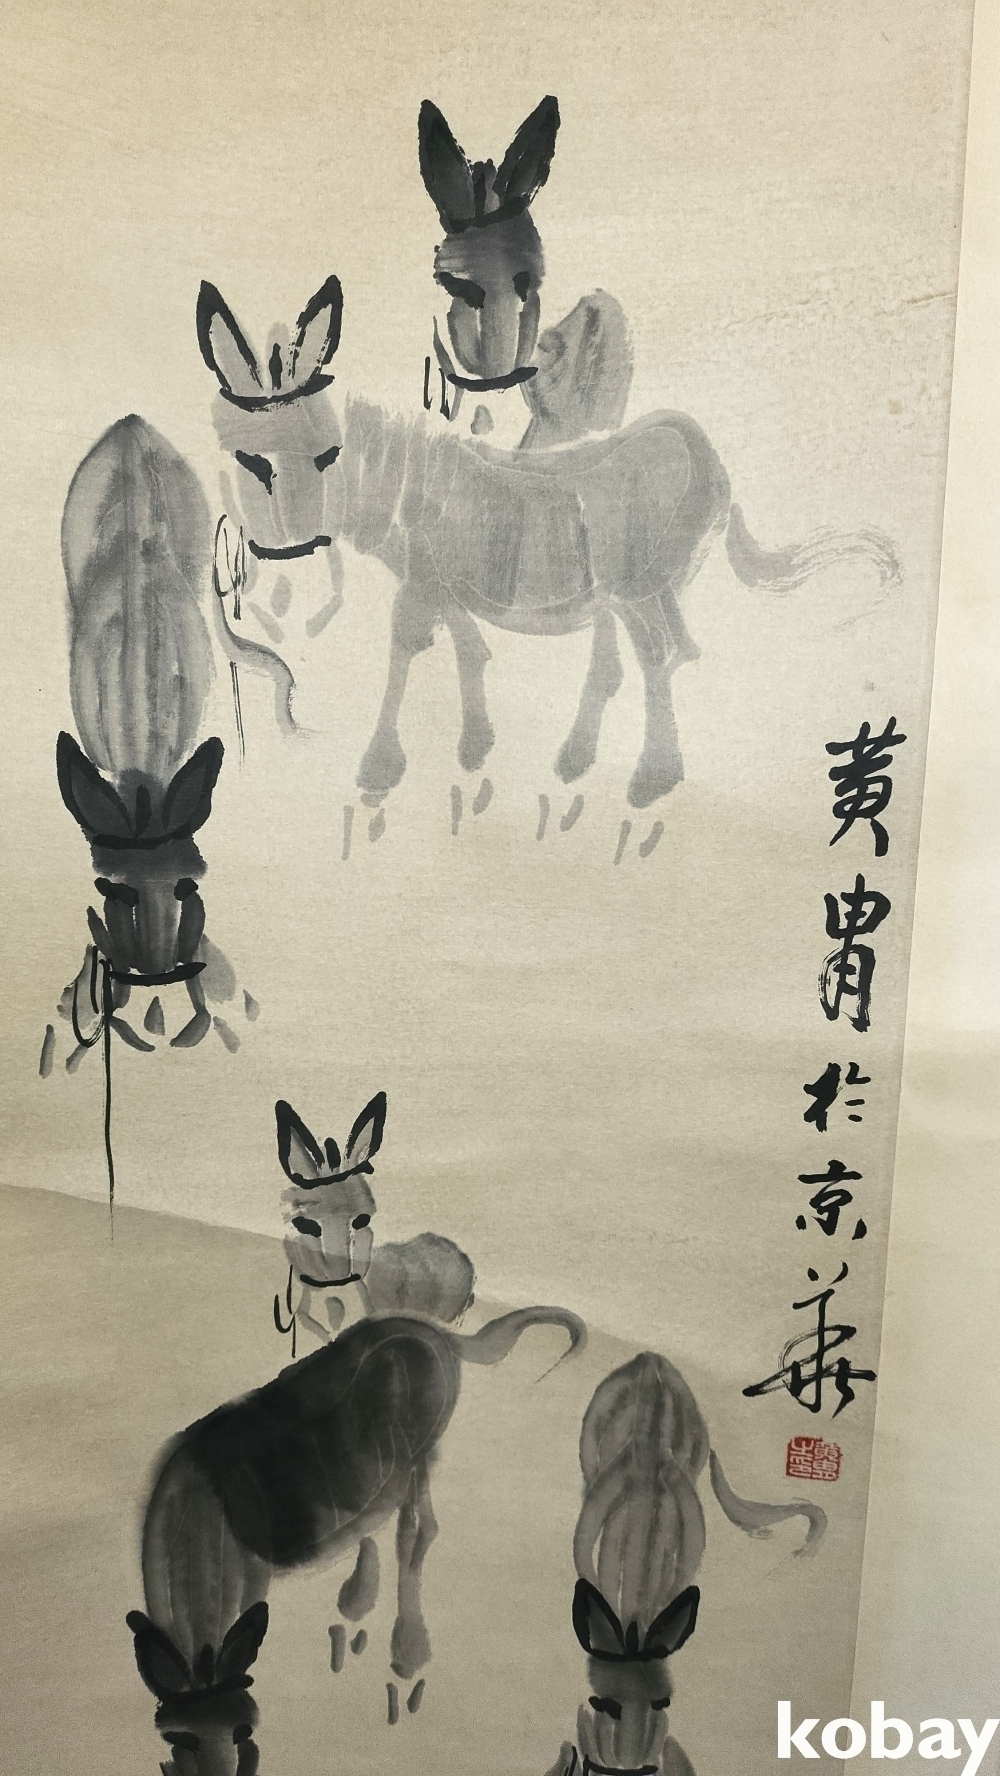 黄胄於京華
kobay